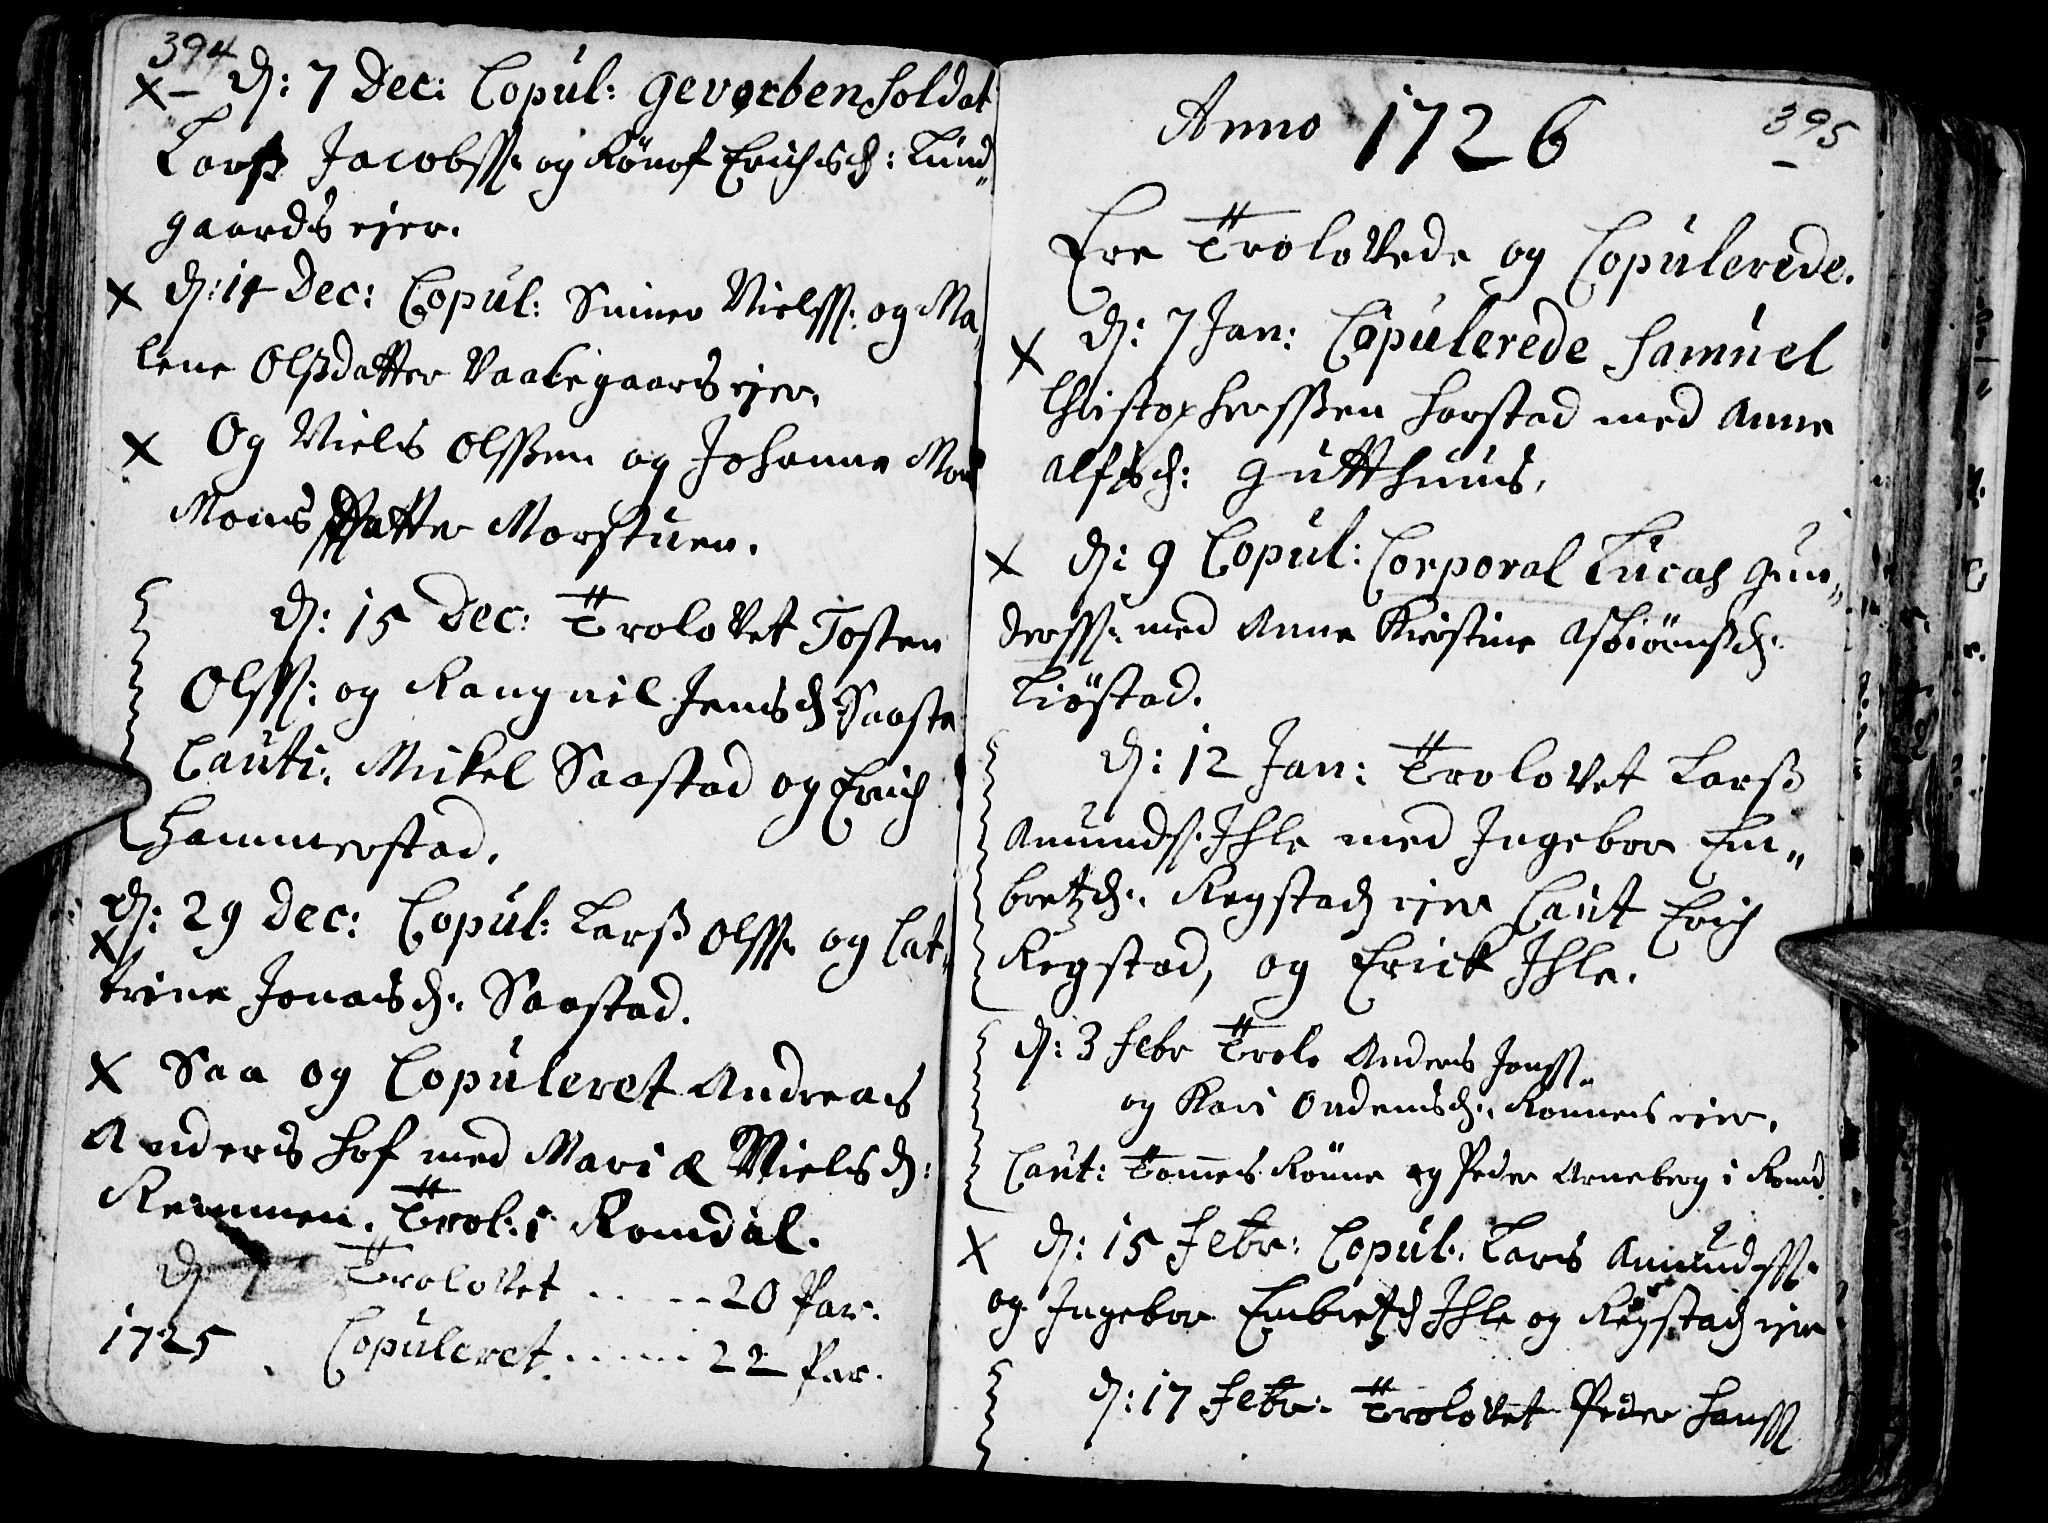 394
x – d: 7 Dec: Copul: gevorben soldat
Larß Jacobss: og Rönof Erichsd: Lund„
gaards ejer.
x d: 14 Dec: Copul: Niels: og Ma„
lene Olßdatter Vaalegaars ejer,
x Og Niels Olssen og Johanne
Mons datter Morstuen.
d: 15 Dec: Trolovet Tosten
Olss: og Rangnil Jensd: Saaste
Cauti: Mikel Saastad og Erich
Hammerstad.
d: 29 Dec: Copul: Larß Olss: og Cat„
x
trine Jonasd: Saastad.
x Saa og Copuleret Andreas
Anders Hof med Maria Nielsd:
Remmen. Trol: i Romdal.
d Trolovet ..... 20 Par.
1725. Copuleret ...... 22 Par.
Anno 1726
395
Ere Trolovede og Copulerede.
x d: 7 Jan: Copulerede Samuel
Christophersßen Horstad med Anne
Alfsd: Gutthuus.
x d: 9 Copul: Corporal Lucas Gun„
derss: med Anne Kirstine Asbiörnsd:
Liöstad.
d: 12 Jan: Trolovet Larß
Amunds: Ihle med Ingebor Em„
bretzd: Regstad ejer Caut Erich
Regstad, og Erick Ihle.
d: 3 Febr Trolo Anders Jonss:
og Kari Ondensd: Ronnes ejer.
Caut: Tommes Rönne og Peder Arneberg i Romd
x d: 15 Febr: Copul: Lars Amundss:
og Ingebor Embretzd Ihle og Regstad ejer
d: 17 Febr: Trolovet Peder Hanss